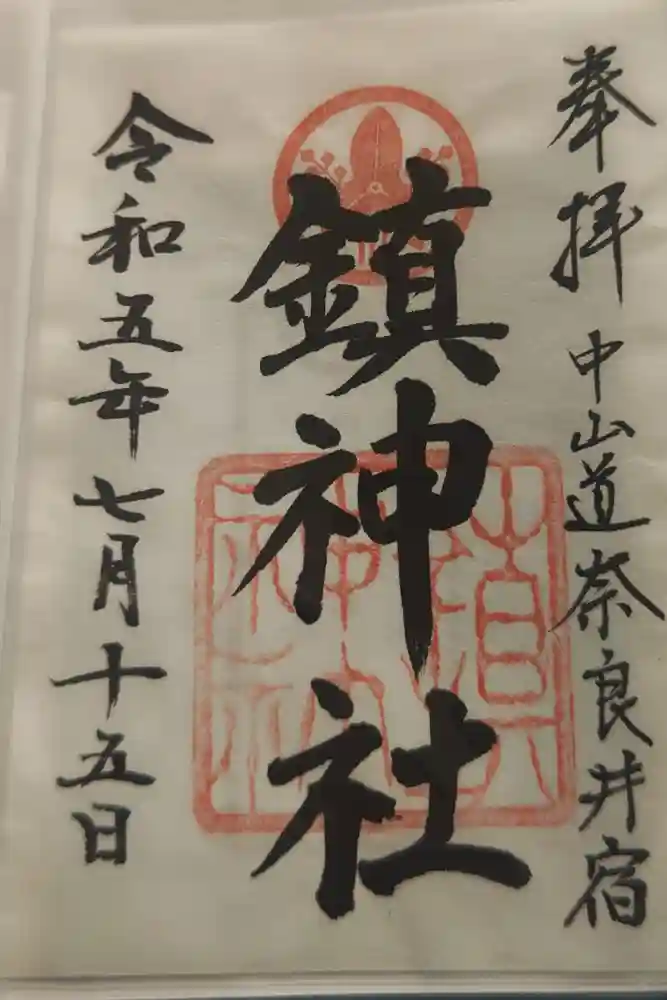 奉拝 中山道奈良井宿
鎮神社
令和五年七月十五日